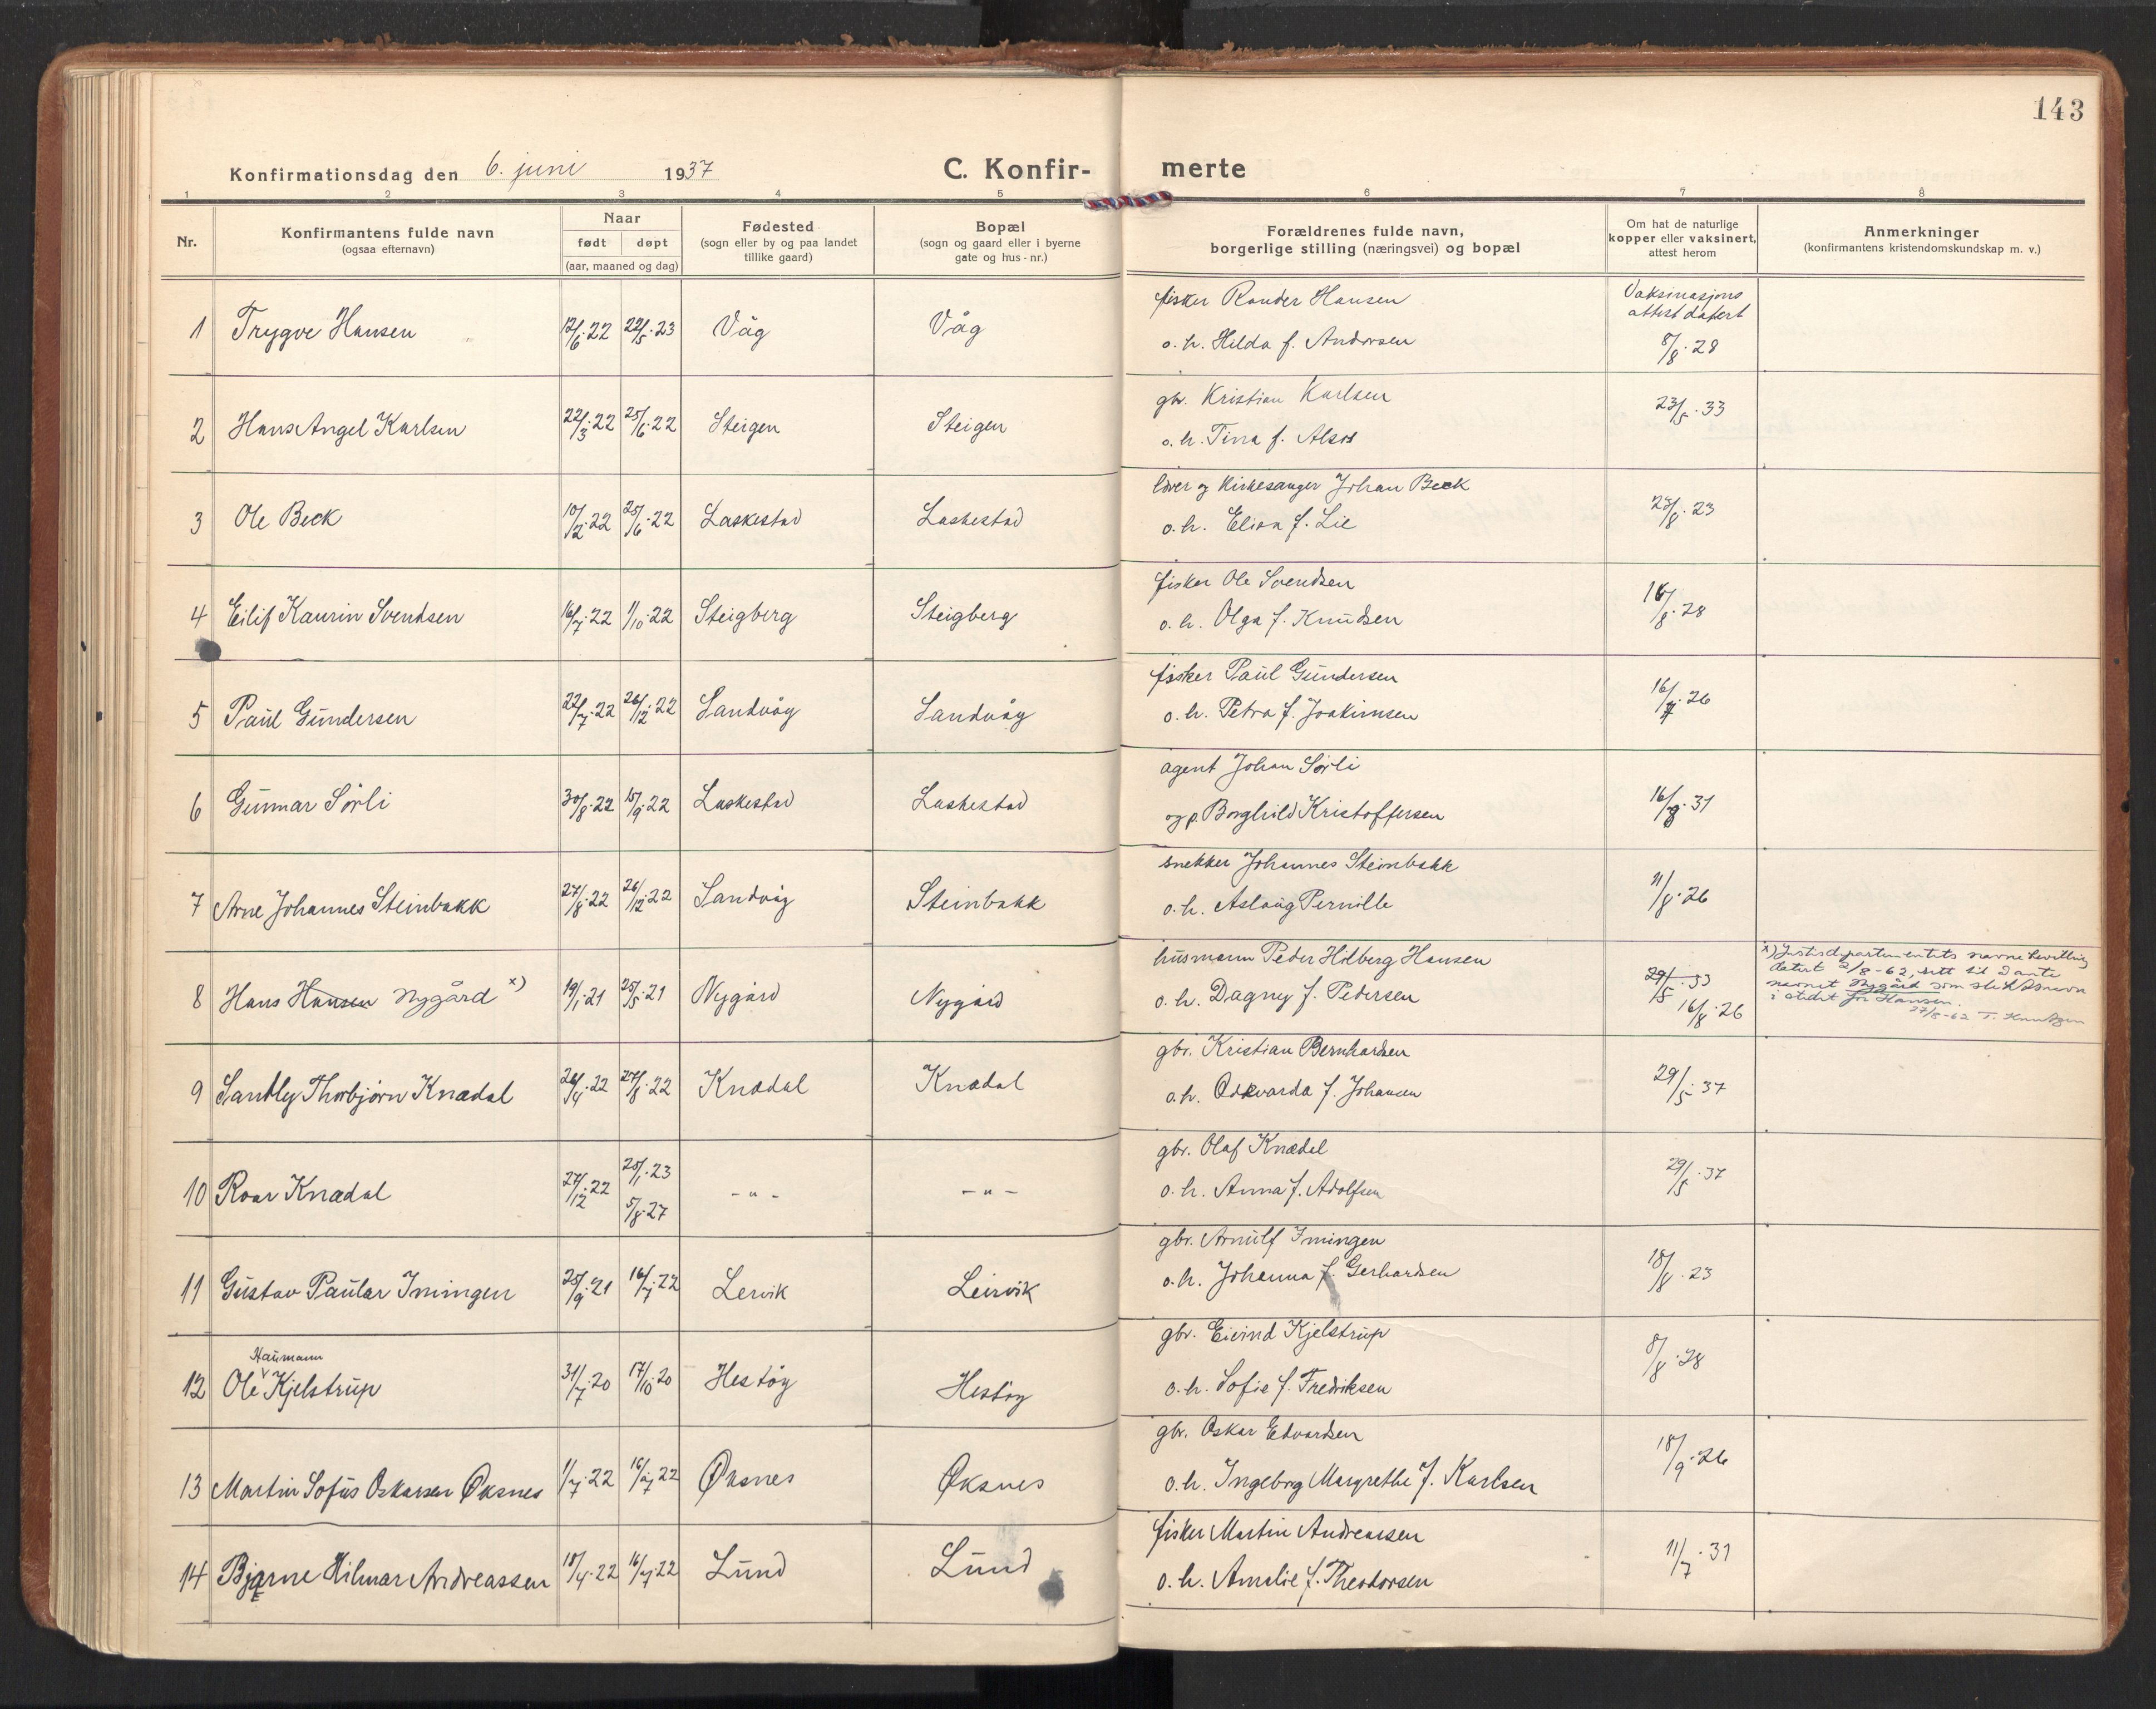 143
Konfirmationsdag den 6. juni 1937
C. Konfirmerte
1 2 3 4 5 6 7 8
Nr.
Konfirmantens fulde navn
(ogsaa efternavn)
Naar
født døpt
(aar, maaned og dag)
Fødested
(sogn eller by og paa landet
tillike gaard)
Bopæl
(sogn og gaard eller i byerne
gate og hus-nr.)
Forældrenes fulde navn,
borgerlige stilling (næringsvei) og bopæl
Om hat de naturlige
kopper eller vaksinert,
attest herom
Anmerkninger
(konfirmantens kristendomskundskap m. v.)
1 Trygve Hansen 12/6·22 22/5·23 Våg Våg
fisker Rander Hansen
o. h. Hilda f. Andorsen
Vaksinasjons
attest datert
8/8·28
2 Hans Angel Karlsen 22/3·22 25/6·22 Steigen Steigen
gbr. Kristian Karlsen
o. h. Tina f. Alsos
23/5·33
3 Ole Beck 10/2·22 25/6·22 Laskestad Laskestad
lærer og kirkesanger Johan Beck
o. h. Elisa f. Lie
8·23
4 Eilif Kaurin Svendsen 16/7·22 1/10·22 Steigberg Steigberg
fisker Ole Svendsen
o. h. Olga f. Knudsen
8·28
5 Paul Gundersen 22/7·22 26/12·22 Sandvåg Sandvåg
fisker Paul Gundersen
o. h. Petra f. Joakimsen
16/7·26
6 Gunnar Sørli 30/8·22 15/9·22 Laskestad Laskestad
agent Johan Sørli
og p. Borghild Kristoffersen
16/8·31
7 Arne Johannes Steinbakk 27/8·22 26/12·22 Sandvåg Steinbakk
snekker Johannes Steinbakk
o. h. Aslaug Pernille
11/8·26
8 Hans Hansen Nygård x) 19/1·21 25/5·21 Nygård Nygård
husmann Peder Hilberg Hansen
o. h. Dagny f. Pedersen
29/5·33
16/8·26
x) Justisdepartementets navnebevilling
datert 2/8-62, rett til å anta
navnet Nygård som slektsnavn
i stedet for Hansen.
27/8-62 T. Knutzen
9 Sandly Thorbjørn Knædal 26/4·22 27/8·22 Knædal Knædal
gbr. Kristian Bernhardsen
o. h. Odevarda f. Johansen
29/5·37
10 Roar Knædal 27/12·22 25/1·23 -"- -"-
5/8·27
gbr. Olaf Knædal
o. h. Anna f. Adolfsen
29/5·37
11 Gustav Paular Iningen 25/9·21 16/7·22 Lervik Leirvik
gbr. Arnulf Iningen
o. h. Johanna f. Gerhardsen
18/8·23
Haumann
12 Ole Kjelstrup 31/7·20 17/10·20 Hestøy Hestøy
gbr. Eivind Kjelstrup
o. h. Sofie f. Fredriksen
8/8·28
13 Martin Sofus Oskarsen Øksnes 1/7·22 16/7·22 Øksnes Øksnes
gbr. Oskar Edvardsen
o. h. Ingeborg Margrethe f. Karlsen
18/9·26
14 Bjarne Hilmar Andreassen 18/4·22 16/7·22 Lund Lund
fisker Martin Andreassen
o. h. Amalie f. Theodorsen
11/7·31